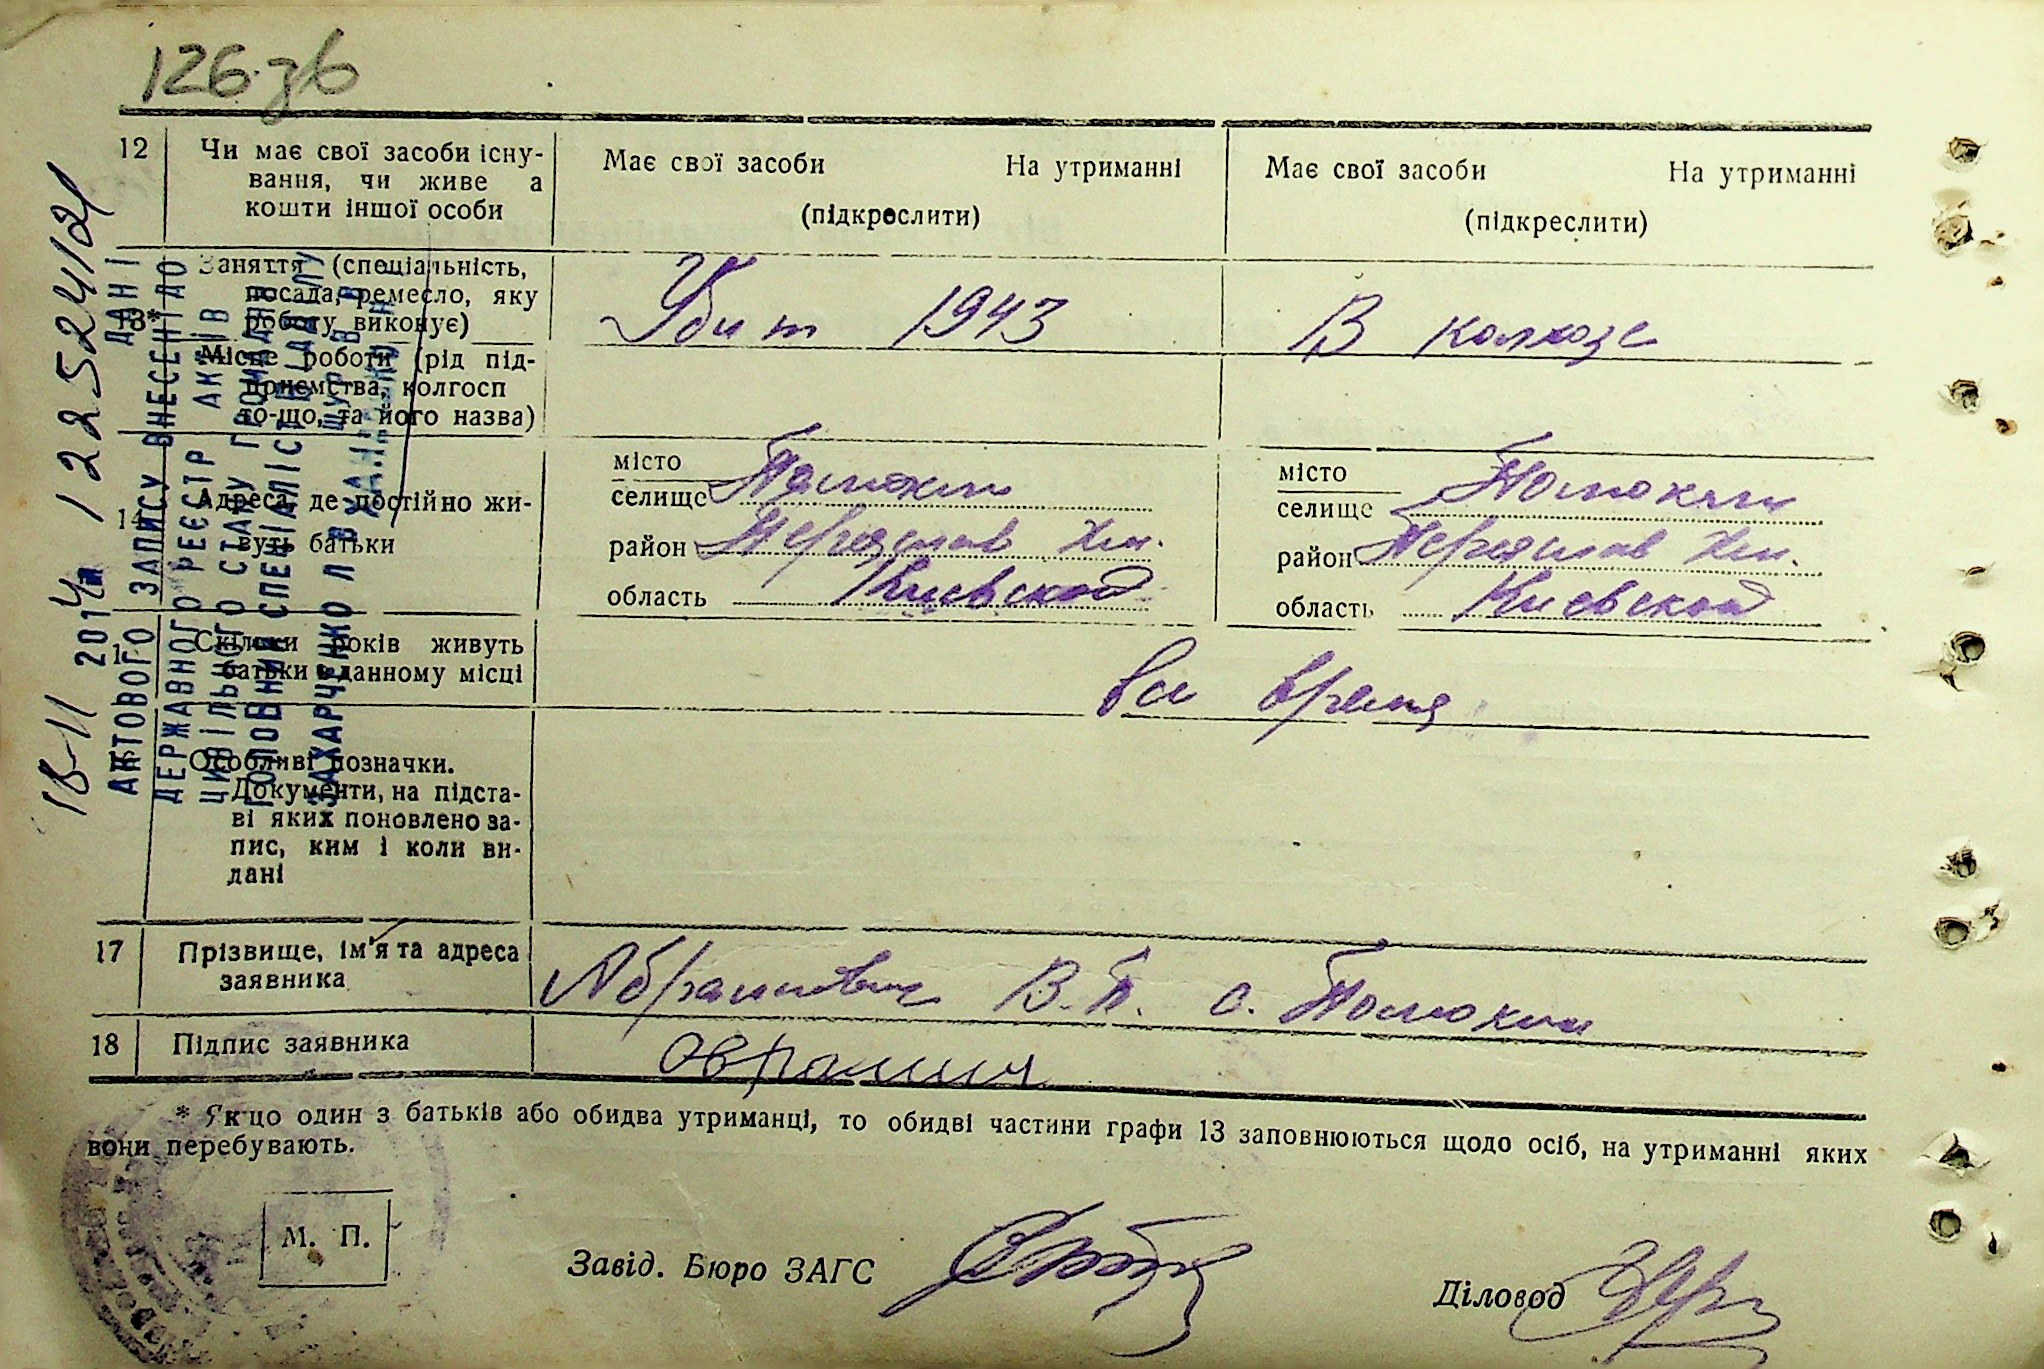 126 зв
12 Чи має свої засоби існу-
вання, чи живе а
кошти іншої особи
Має свої засоби На утриманні
(підкреслити)
Має свої засоби На утриманні
(підкреслити)
13*
Заняття (спеціальність,
посада, ремесло, яку
роботу виконує)
Убит 1943
В колхозе
Місце роботи (рід під-
приємства, колгосп
то-що, та його назва)
14
Адреса, де постійно жи-
вуть батьки
місто
селище Помоклы
район Переяслав Хм.
область Киевской
місто
селище Помоклы
район Переяслав Хм.
область Киевской
Скільки років живуть
батьки в данному місці
все время
Особливі позначки.
Документи, на підста-
ві яких поновлено за-
пис, ким і коли ви-
дані
17 Прізвище, ім'я та адреса
заявника
Абрамович В.П. с. Помоклы
18 Підпис заявника
* Якщо один з батьків або обидва утриманці, то обидві частини графи 13 заповнюються щодо осіб, на утриманні яких
вони перебувають.
М. П.
Завід. Бюро ЗАГС
Діловод
18-11 2014
ДАНІ
АКТОВОГО ЗАПИСУ ВНЕСЕНІ ДО
ДЕРЖАВНОГО РЕЄСТРУ АКТІВ
ЦИВІЛЬНОГО СТАНУ ГРОМАДЯН
ГОЛОВНИЙ СПЕЦІАЛІСТ ВІДДІЛУ
ЗАХАРЧЕНКО Л.В.